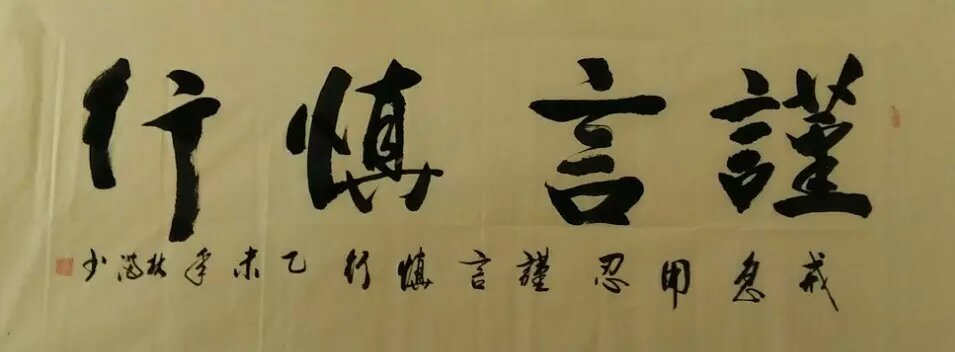 謹言慎行
戒急用忍謹言慎行乙未年林